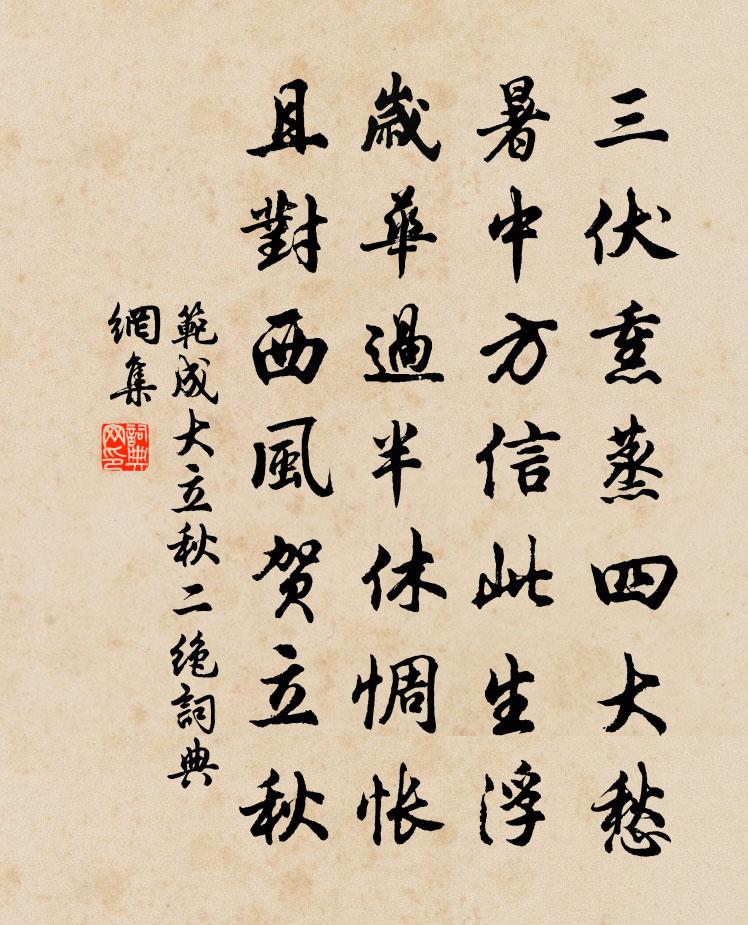 三伏熏蒸四大愁
暑中方信此生浮
歲華過半休惆悵
且對西風贺立秋
範成大立秋二绝詞典
網集
詞典
网印